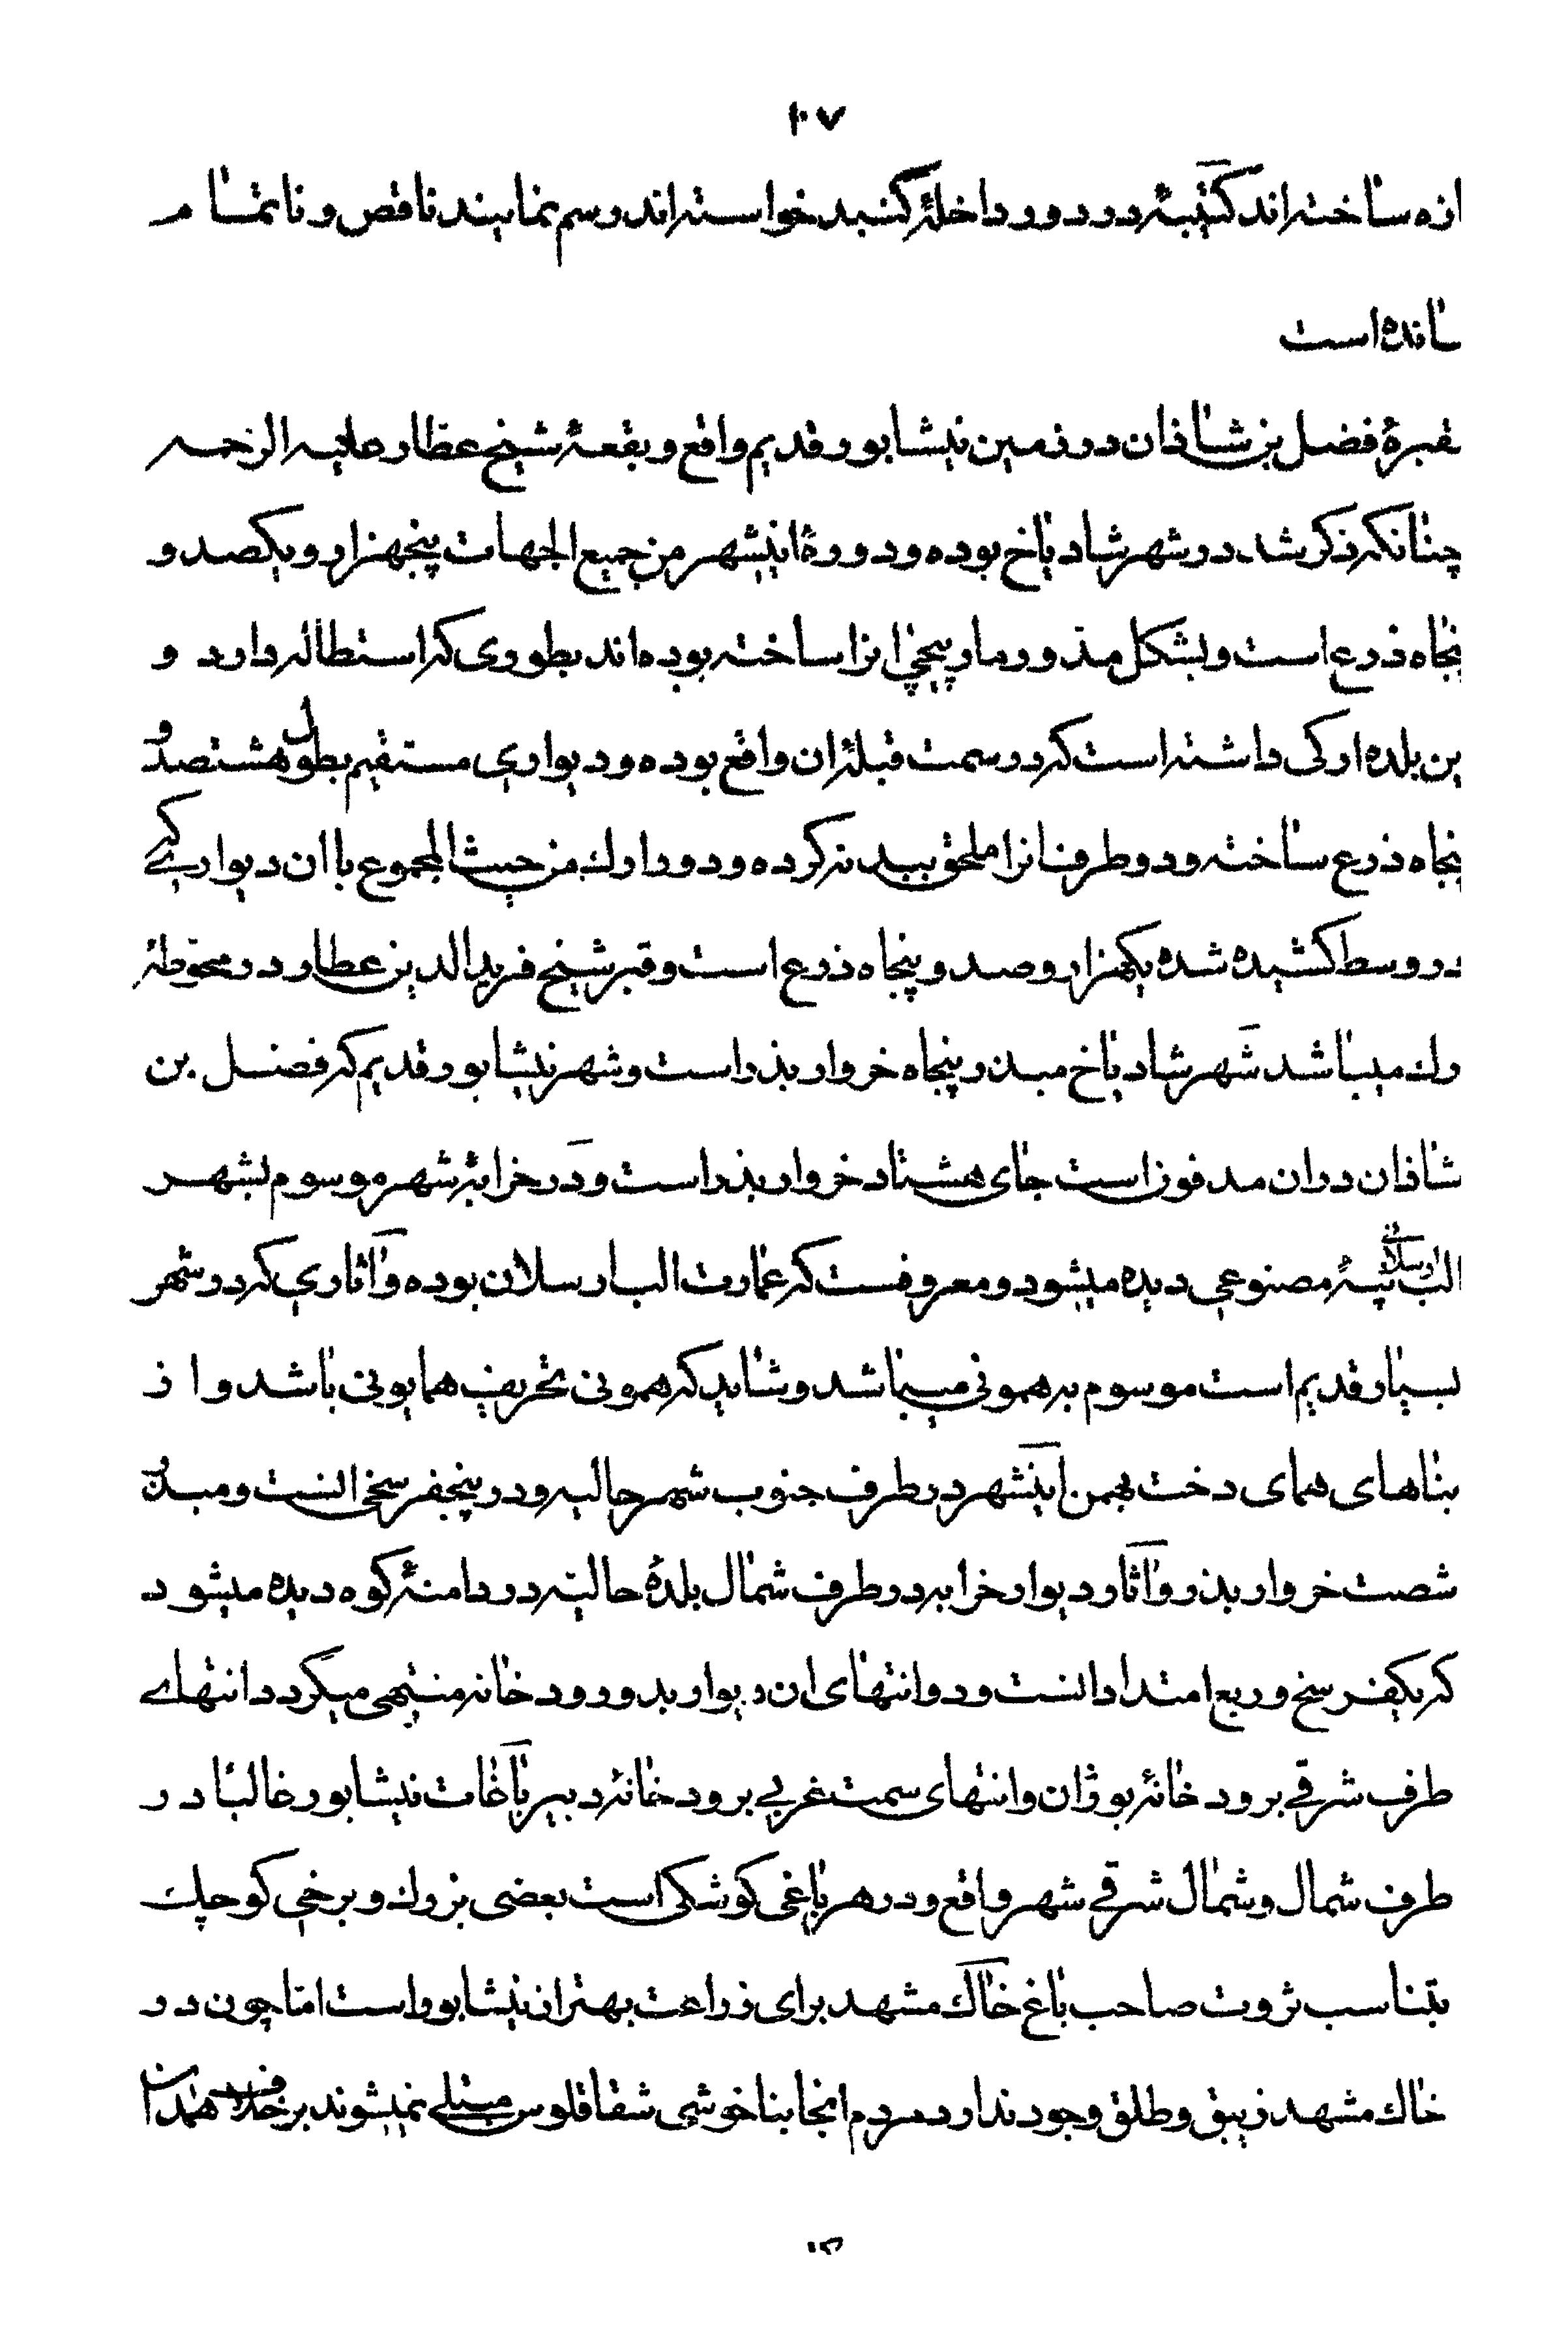 ۱۰۷
ازه ساخته‌اند کتیبۀ در دور داخلۀ گنبد خواسته‌اند رسم نمایند ناقص و ناتمام
مانده است
مقبرۀ فضل بن شاذان در زمین نیشابور قدیم واقع و بقعۀ شیخ عطار علیه الرحمه
چنانکه ذکر شد در شهر شادیاخ بوده و دورۀ اینشهر من جمیع الجهات پنجهزار و یکصد و
پنجاه ذرع است و بشکل مدور مارپیچی انرا ساخته بوده‌اند بطوری که استطاله دارد و
این بلده ارکی داشته است که در سمت قبلۀ ان واقع بوده و دیواری مستقیم بطول هشتصد و
پنجاه ذرع ساخته و دو طرف انرا ملحق ببدنه کرده و دور ارك من حیث المجموع با ان دیواریکه
در وسط کشیده شده یکهزار و صد و پنجاه ذرع است و قبر شیخ فریدالدین عطار در محوطۀ
ارك میباشد شهر شادیاخ مبذر پنجاه خروار بذر است و شهر نیشابور قدیم که فضل بن
شاذان در ان مدفونست جای هشتاد خروار بذر است و در خرابۀ شهر موسوم بشهر
الب ارسلان تپۀ مصنوعی دیده میشود و معروفست که عمارت الب ارسلان بوده و آثاری که در شهر
بسیار قدیم است موسوم به همونی میباشد و شاید که همونی تحریف همایونی باشد و از
بناهای همای دخت بهمن اینشهر در طرف جنوب شهر حالیه و در پنجفرسخی انست و مبذر
شصت خروار بذر و آثار دیوار خرابه در طرف شمال بلدۀ حالیه در دامنۀ کوه دیده میشود
که یکفرسخ و ربع امتداد انست و دو انتهای ان دیوار بدو رودخانه منتهی میگردد انتهای
طرف شرقی برودخانۀ بوژان و انتهای سمت غربی برودخانۀ دبیر باغات نیشابور غالباً در
طرف شمال و شمال شرقی شهر واقع و در هر باغی کوشکی است بعضی بزرك و برخی کوچك
بتناسب ثروت صاحب باغ خاك مشهد برای زراعت بهتر از نیشابور است اما چون در
خاك مشهد زیبق و طلق وجود ندارد مردم انجا بناخوشی شقاقلوس مبتلی نمیشوند برخلاف همدان